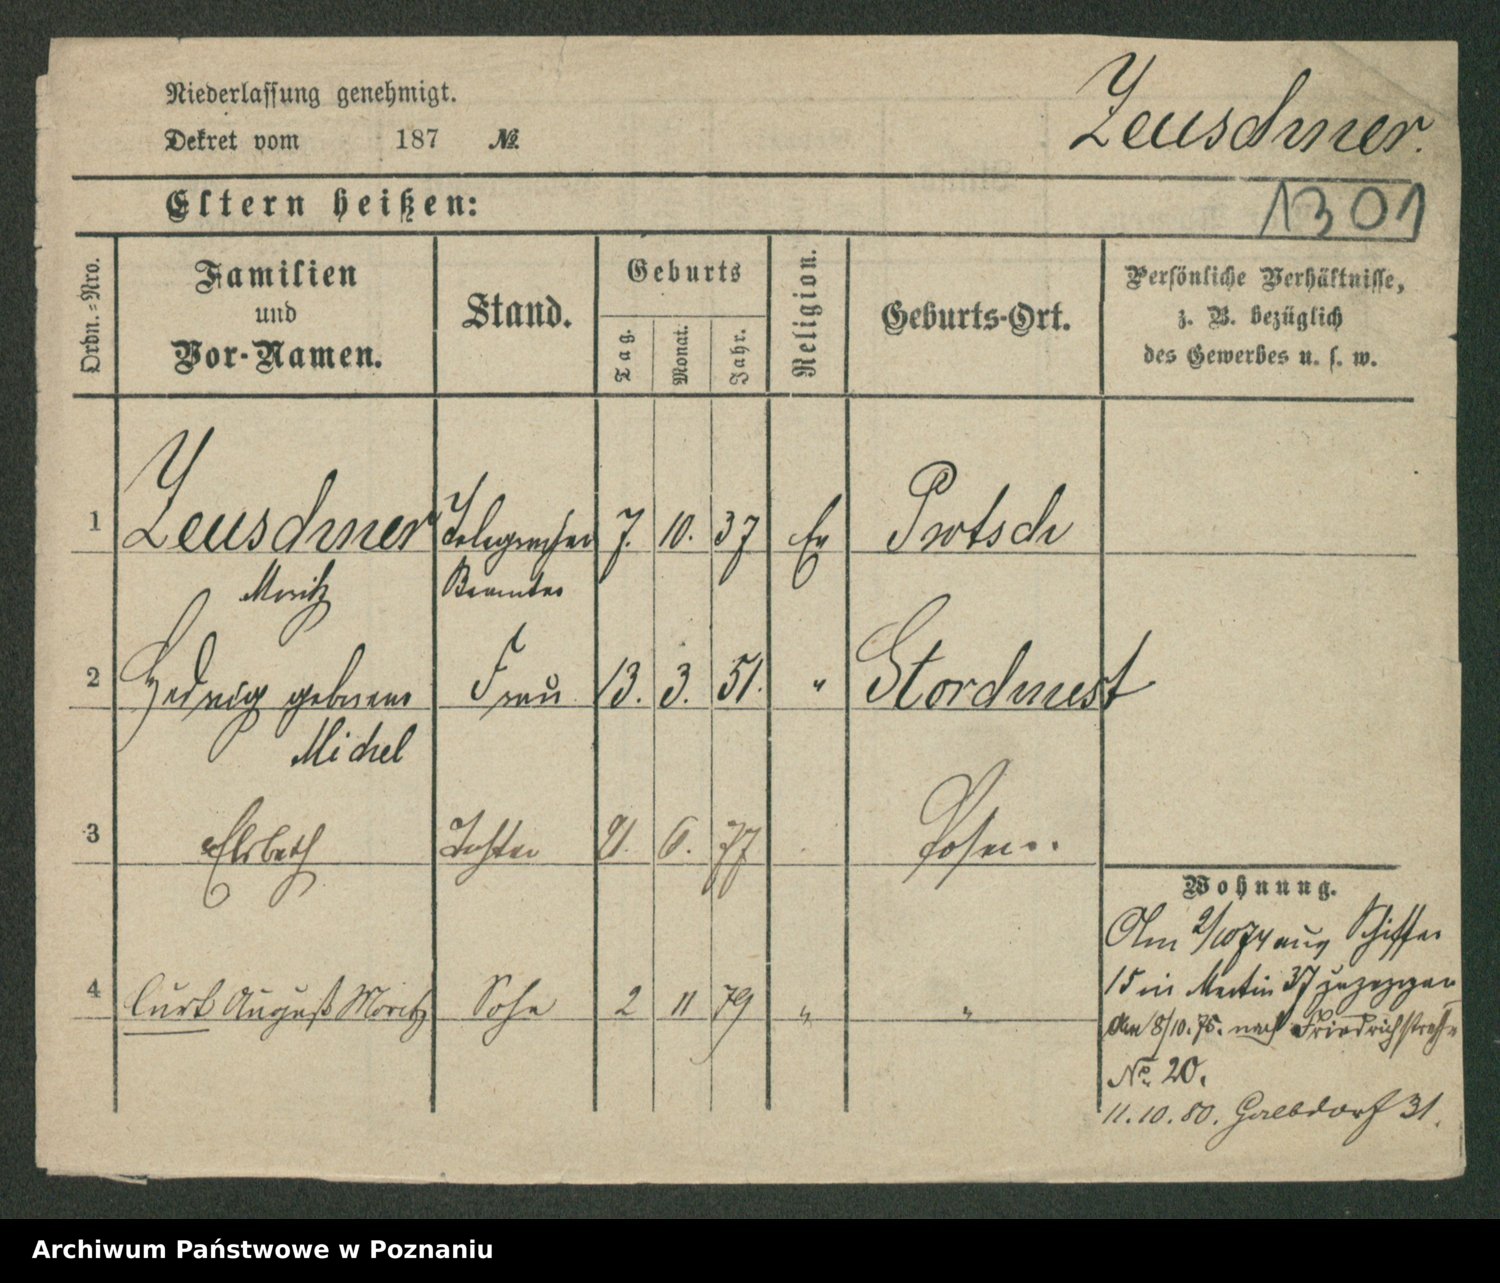 Niederlassung genehmigt.
Dekret vom 187 №
Zeuschner.
1301
Eltern heißen:
Ordn.-Nro.
Familien und Vor-Namen.
Stand.
Geburts
Tag. Monat. Jahr.
Religion.
Geburts-Ort.
Persönliche Verhältnisse, z. B. bezüglich des Gewerbes u. s. w.
1 Zeuschner Telegraphen 7. 10. 37 Ev Protsch
Moritz Beamter
2 Hedwig geborene Frau 13. 3. 51. "
Michel
3 Elsbeth Tochter 21. 6. 77 Posen.
4 Curt August Moritz Sohn 2 11 79 " "
Wohnung.
Am 2/10 74 aus Schiffer
15 in Martin 37 zugezogen
Am 8/10. 75. nach Friedrichstraße
No. 20.
11. 10. 80. Halbdorf 31.
Archiwum Państwowe w Poznaniu